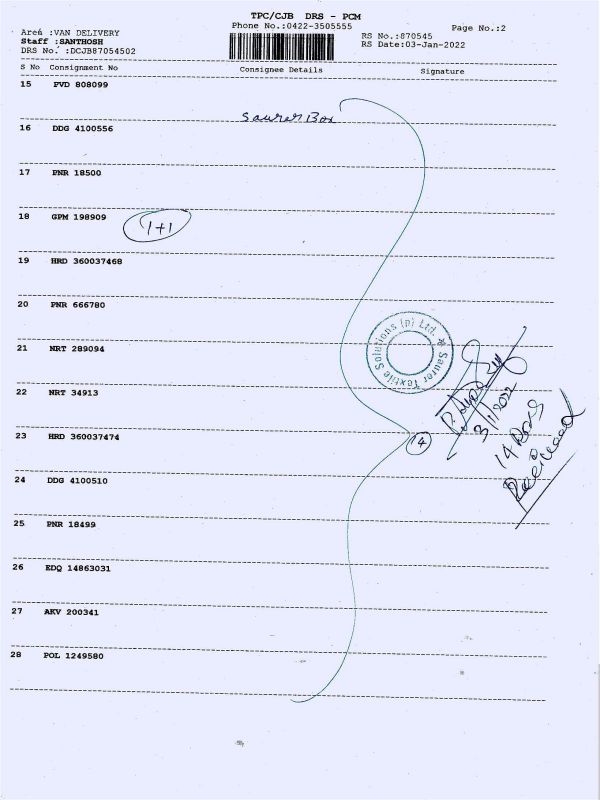 TPC/CJB DRS - PCM
Phone No.:0422-3505555
Page No.:2
Areá :VAN DELIVERY
Staff :SANTHOSH
DRS No. :DCJB87054502
RS No.:870545
RS Date:03-Jan-2022
S No Consignment No Consignee Details Signature
15 PVD 808099
Saurer Box
16 DDG 4100556
17 PNR 18500
18 GPM 198909
1+1
19 HRD 360037468
20 PNR 666780
21 NRT 289094
Saurer Textile Solutions (p) Ltd. ★
22 NRT 34913
3/1/2022
23 HRD 360037474
4
14
Received
24 DDG 4100510
25 PNR 18499
26 EDQ 14863031
27 AKV 200341
28 POL 1249580